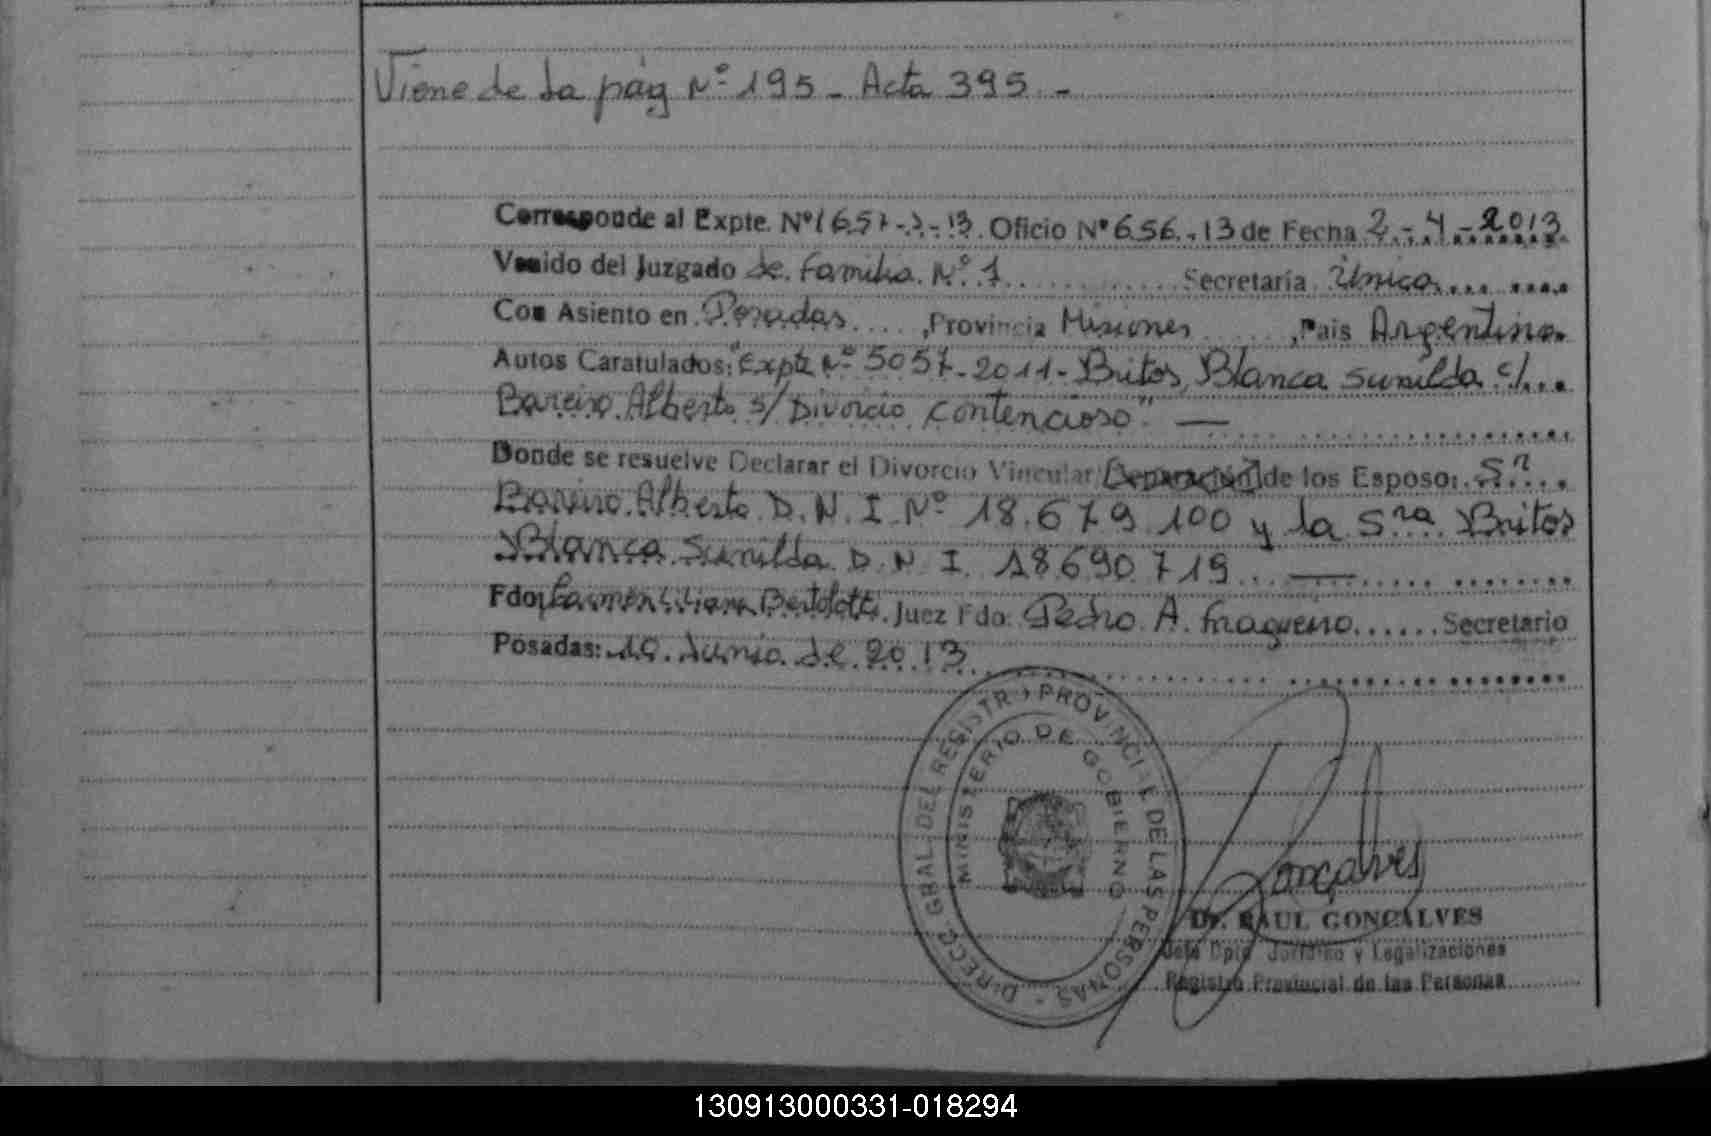 Viene de la pág Nº 195 - Acta 395 -
Corresponde al Expte. Nº 1657-2-13 Oficio Nº 656-13 de Fecha 2-4-2013
Venido del Juzgado de Familia Nº 1 Secretaría Única
Con Asiento en Posadas, Provincia Misiones, Pais Argentina
Autos Caratulados: "Expte Nº 5057-2011- Britos, Blanca Sunilda c/
Bareiro Alberto s/ Divorcio Contencioso" —
Donde se resuelve Declarar el Divorcio Vincular de los Esposo: Sr
Bareiro Alberto D.N.I. Nº 18.679.100 y la Sra Britos
Blanca Sunilda D.N.I. 18690719 —
Fdo: Carmen Liliana Bertolotti. Juez Fdo: Pedro A. Fragueiro Secretario
Posadas: 10 Junio de 2013
DIRECC. GRAL. DEL REGISTRO PROVINCIAL DE LAS PERSONAS
MINISTERIO DE GOBIERNO
Gonçalves
Dr. RAUL GONÇALVES
Jefe Dpto Jurídico y Legalizaciones
Registro Provincial de las Personas
130913000331-018294